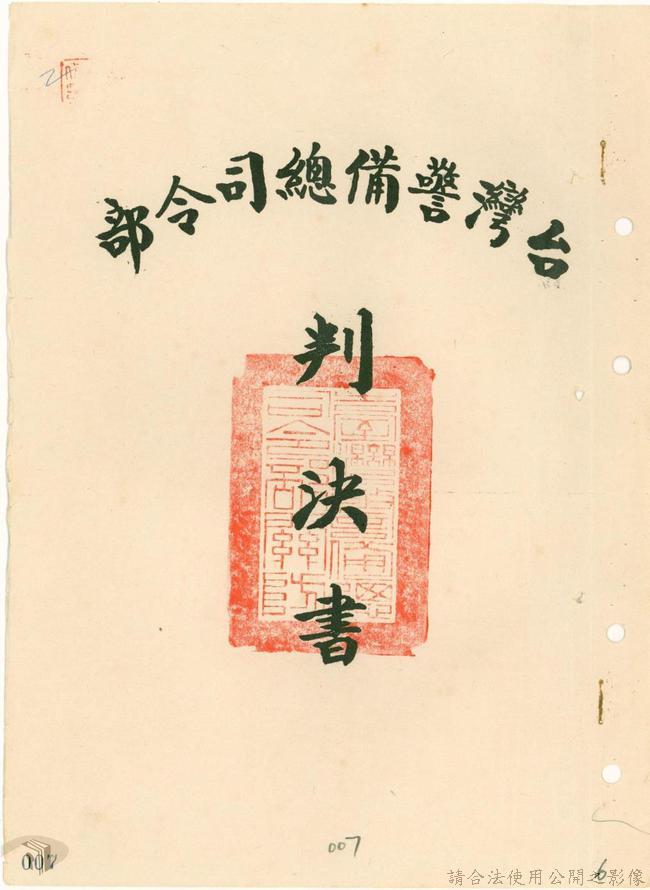 台灣警備總司令部
判決書
007
007
6
請合法使用公開之影像